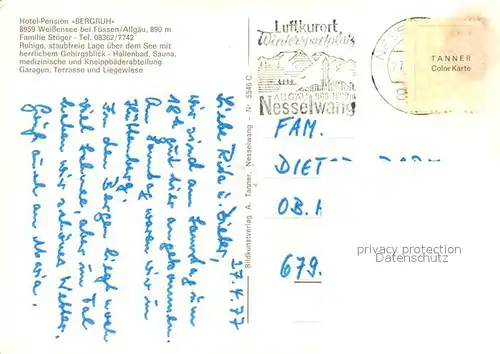 Hotel-Pension «BERGRUH»
8959 Weißensee bei Füssen/Allgäu, 890 m
Familie Stöger - Tel. 08362/7742
Ruhige, staubfreie Lage über dem See mit
herrlichem Gebirgsblick - Hallenbad, Sauna,
medizinische und Kneippbäderabteilung
Garagen, Terrasse und Liegewiese
27.4.77
Liebe Rida u. Dieter,
wir sind am Samstag um
18h gut hier angekommen.
Am Sonntag waren wir in
Hüttenberg.
In den Bergen liegt noch
viel Schnee, aber im Tal
haben wir schönes Wetter.
Grüß auch an Maria.
Bildkunstverlag A. Tanner, Nesselwang - Nr. 5546 C
Luftkurort
Wintersportplatz
ALLGÄU 900-1600m
Nesselwang
TANNER
Color Karte
FAM.
DIET
OB.
679.
privacy protection
Datenschutz